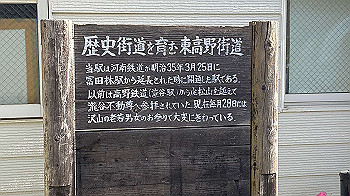 歴史街道を育む東高野街道
当駅は河南鉄道が明治35年3月25日に
富田林駅から延長された時に開通した駅である。
以前は高野鉄道(滝谷駅)から庄松山を越えて
滝谷不動尊へ参拝されていた。現在毎月28日には
沢山の老若男女のお参りで大変にぎわっている。